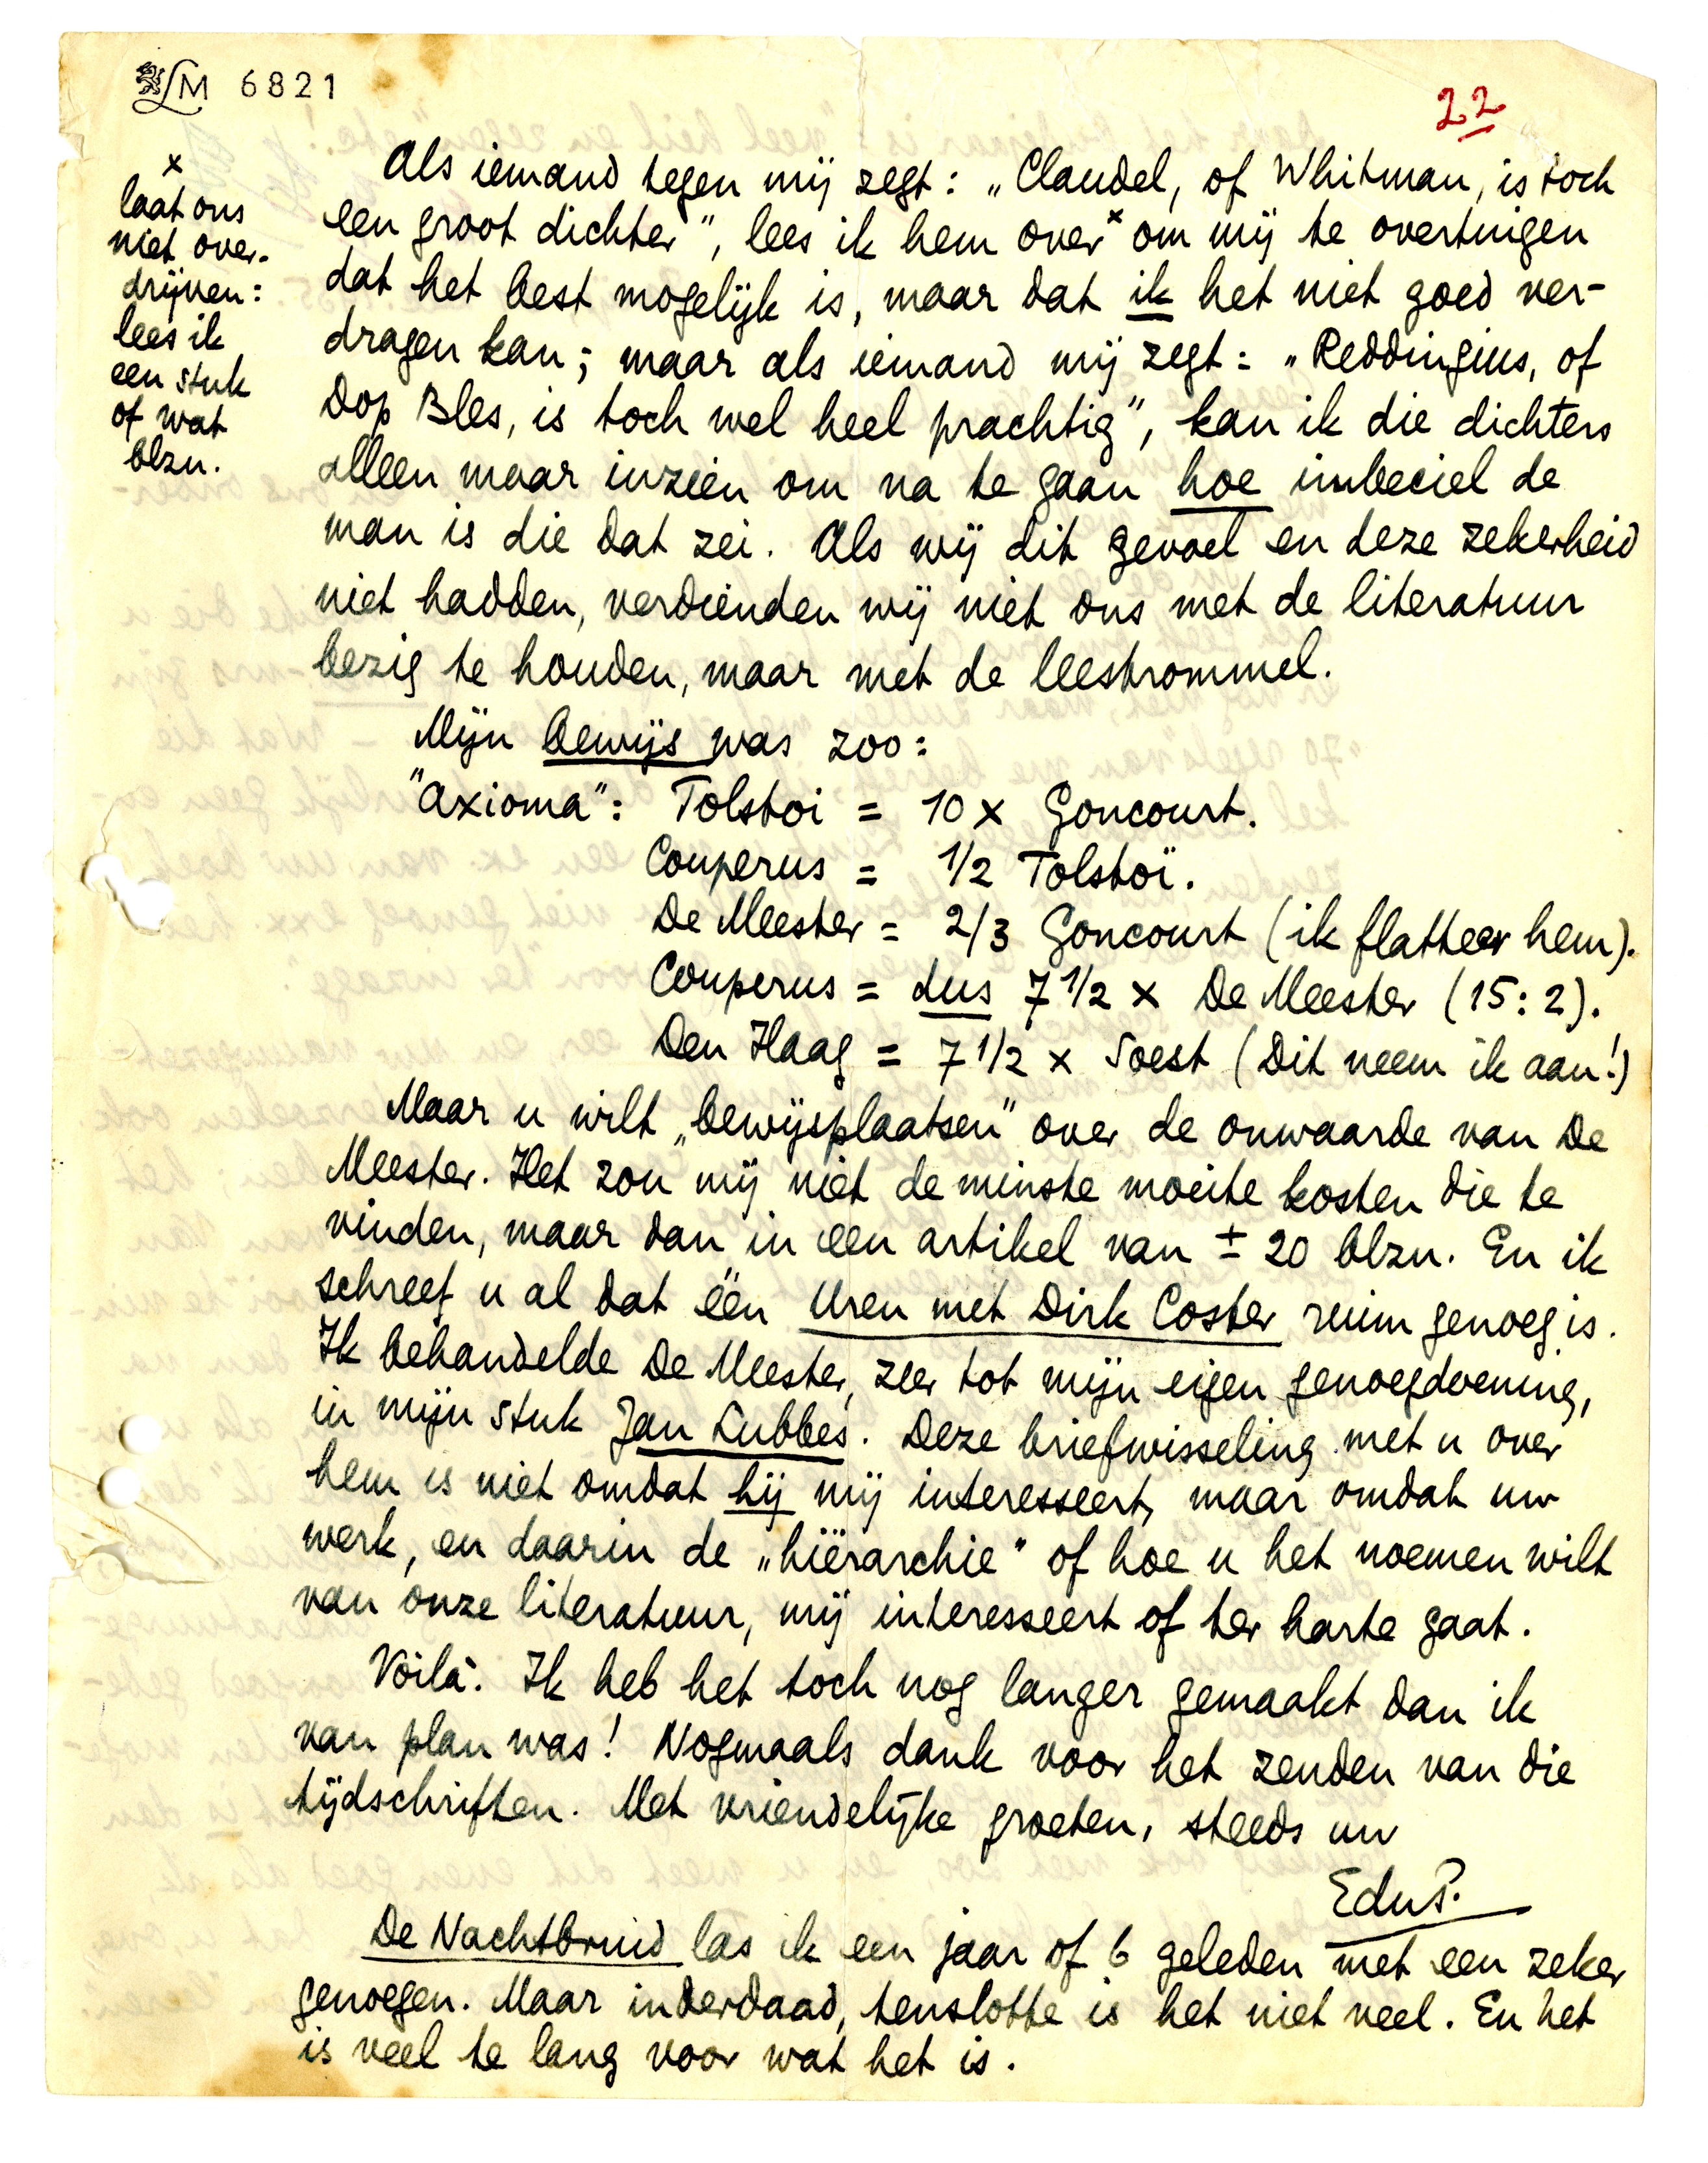 LM 6821
22
Als iemand tegen mij zegt: „Claudel, of Whitman, is toch
een groot dichter", lees ik hem over x om mij te overtuigen
dat het best mogelijk is, maar dat ik het niet goed ver-
dragen kan; maar als iemand mij zegt: „Reddingius, of
Dop Bles, is toch wel heel prachtig", kan ik die dichters
alleen maar inzien om na te gaan hoe imbeciel de
man is die dat zei. Als wij dit gevoel en deze zekerheid
niet hadden, verdienden wij niet ons met de literatuur
bezig te houden, maar met de leestrommel.
x
laat ons
niet over-
drijven:
lees ik
een stuk
of wat
blzn.
Mijn bewijs was zoo:
"Axioma": Tolstoi = 10 x Goncourt.
Couperus = 1/2 Tolstoï.
De Meester = 2/3 Goncourt (ik flatteer hem).
Couperus = dus 7 1/2 x De Meester (15:2).
Den Haag = 7 1/2 x Soest (Dit neem ik aan!)
Maar u wilt „bewijsplaatsen" over de onwaarde van De
Meester. Het zou mij niet de minste moeite kosten die te
vinden, maar dan in een artikel van ± 20 blzn. En ik
schreef u al dat één Uren met Dirk Coster ruim genoeg is.
Ik behandelde De Meester, zeer tot mijn eigen genoegdoening,
in mijn stuk Jan Lubbes. Deze briefwisseling met u over
hem is niet omdat hij mij interesseert, maar omdat uw
werk, en daarin de „hiërarchie" of hoe u het noemen wilt
van onze literatuur, mij interesseert of ter harte gaat.
Voilà. Ik heb het toch nog langer gemaakt dan ik
van plan was! Nogmaals dank voor het zenden van die
tijdschriften. Met vriendelijke groeten, steeds uw
EduP.
De Nachtbruid las ik een jaar of 6 geleden met een zeker
genoegen. Maar inderdaad, tenslotte is het niet veel. En het
is veel te lang voor wat het is.